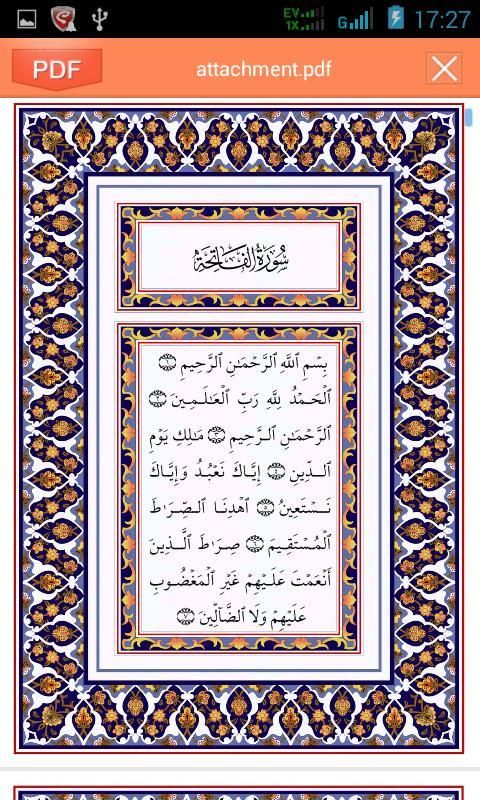 EV
1X
G
17:27
PDF
attachment.pdf
سُورَةُ الْفَاتِحَةِ
بِسْمِ ٱللَّهِ ٱلرَّحْمَـٰنِ ٱلرَّحِيمِ ۝١
ٱلْحَمْدُ لِلَّهِ رَبِّ ٱلْعَـٰلَمِينَ ۝٢
ٱلرَّحْمَـٰنِ ٱلرَّحِيمِ ۝٣ مَـٰلِكِ يَوْمِ
ٱلدِّينِ ۝٤ إِيَّاكَ نَعْبُدُ وَإِيَّاكَ
نَسْتَعِينُ ۝٥ ٱهْدِنَا ٱلصِّرَٰطَ
ٱلْمُسْتَقِيمَ ۝٦ صِرَٰطَ ٱلَّذِينَ
أَنْعَمْتَ عَلَيْهِمْ غَيْرِ ٱلْمَغْضُوبِ
عَلَيْهِمْ وَلَا ٱلضَّآلِّينَ ۝٧